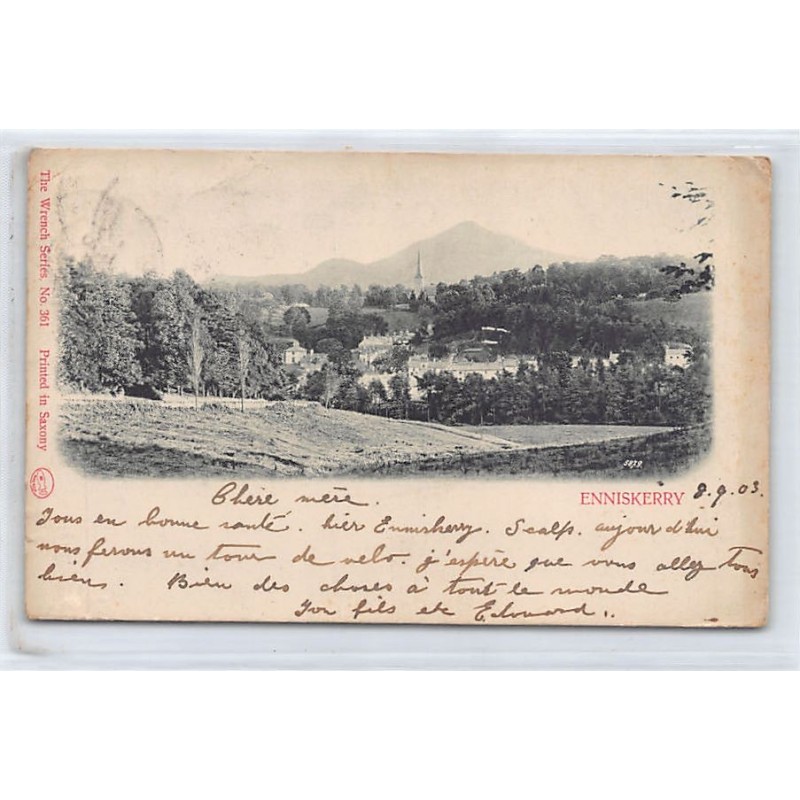 The Wrench Series, No. 361 Printed in Saxony
5979
ENNISKERRY 8.9.03.
Chère mère.
Tous en bonne santé. hier Enniskerry. Scalp. aujourd'hui
nous ferons un tour de velo. j'espère que vous allez tous
bien. Bien des choses à tout le monde
Ton fils et Edouard..